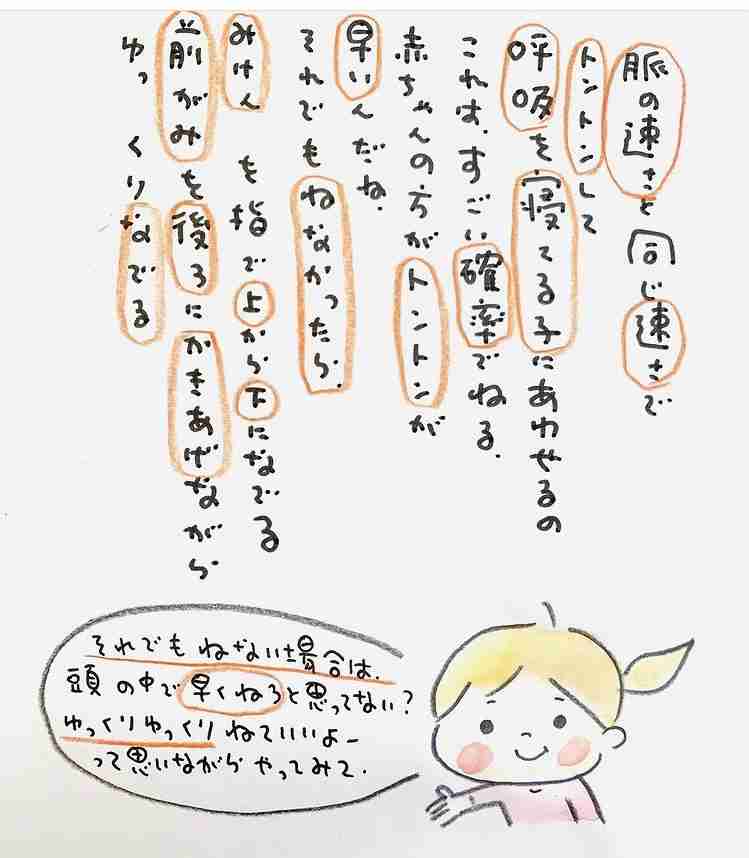 脈の速さと同じ速さで
トントンして
呼吸を寝てる子にあわせるの
これは、すごい確率でねる。
赤ちゃんの方がトントンが
早いんだね。
それでもねなかったら、
みけんを指で上から下になでる
前がみを後ろにかきあげながら
ゆっくりなでる
それでもねない場合は、
頭の中で早くねろと思ってない?
ゆっくりゆっくりねていいよー
って思いながらやってみて。